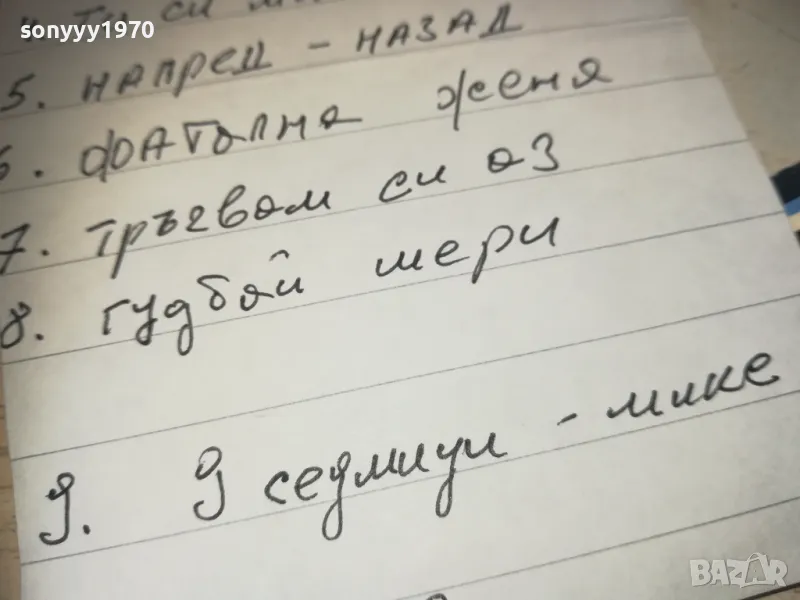 sonyyy1970
ти си
5. напред - назад
6. фатална женя
7. тръгвам си аз
8. гудбай мери
9. 9 седмици - мике
BAZAR